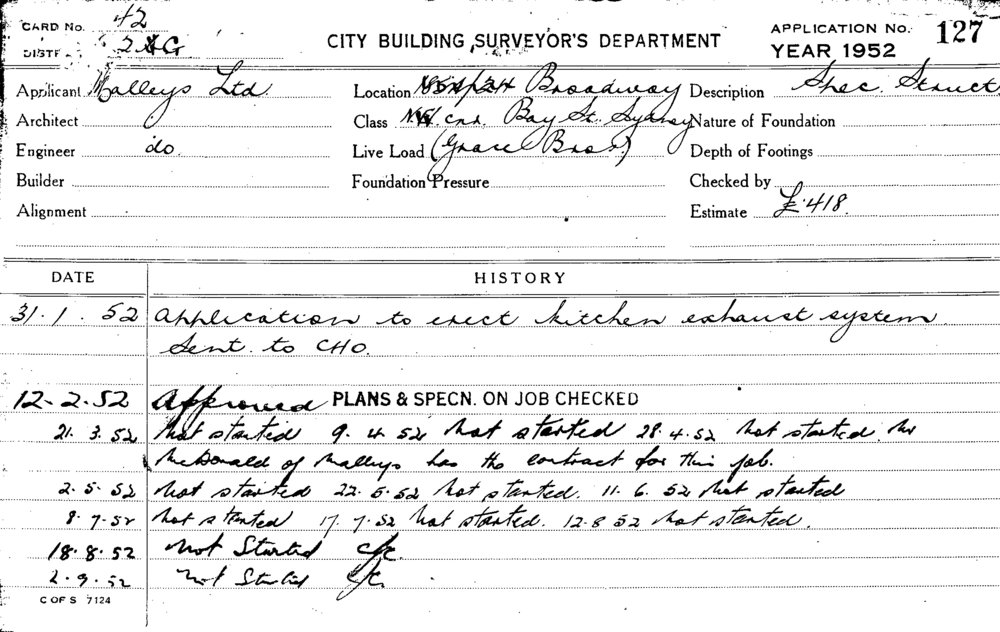 CARD No. 42
DISTR. 2&G
CITY BUILDING SURVEYOR'S DEPARTMENT
APPLICATION No. 127
YEAR 1952
Applicant Malleys Ltd
Location Broadway
Description Spec. Struct
Architect
Class cnr. Bay St. Sydney
Nature of Foundation
Engineer do.
Live Load (Grace Bros)
Depth of Footings
Builder
Foundation Pressure
Checked by
Alignment
Estimate £418.
DATE HISTORY
31.1.52 Application to erect kitchen exhaust system
sent to CHO.
12.2.52 Approved PLANS & SPECN. ON JOB CHECKED
21.3.52 Not started 9.4.52 Not started 28.4.52 Not started. Mr
McDonald of Malleys has the contract for this job.
2.5.52 Not started 22.5.52 Not started. 11.6.52 Not started
8.7.52 Not started 17.7.52 Not started. 12.8.52 Not started.
18.8.52 Not Started
2.9.52 Not Started
C OF S 7124